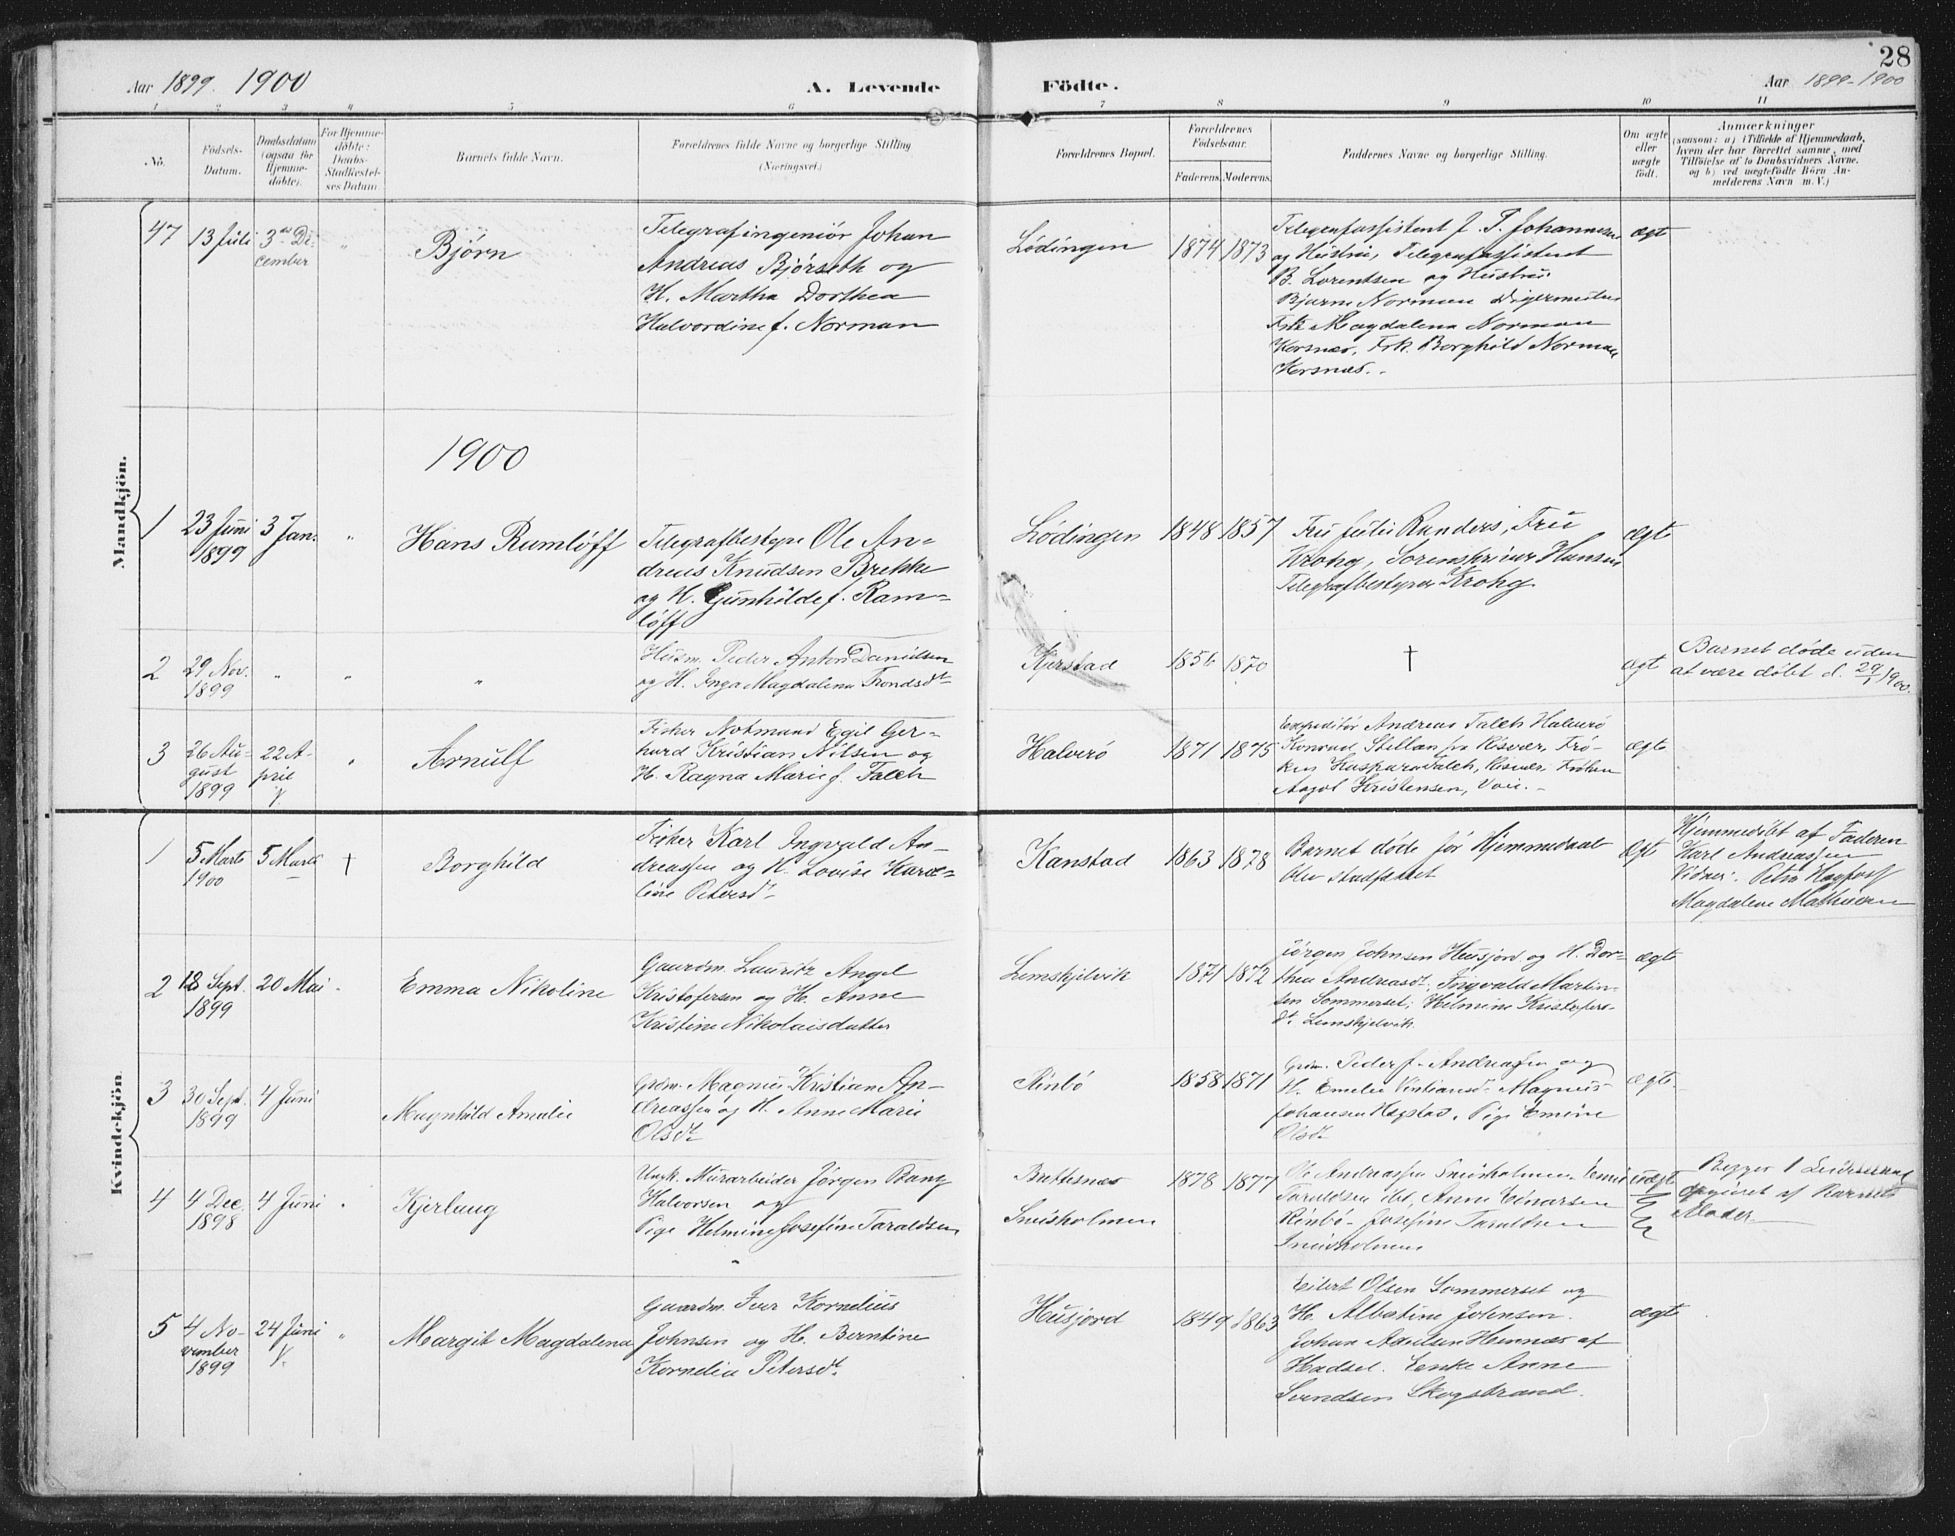 28
Aar 1899. 1900
A. Levende
Födte.
Aar 1899-1900
1 2 3 4 5 6 7 8 9 10 11
No.
Födsels-
Datum.
Daabsdatum
(ogsaa for
Hjemme-
döbte).
For Hjemme-
döbte:
Daabs-
Stadfæstel-
ses Datum
Barnets fulde Navn.
Forældrenes fulde Navne og borgerlige Stilling
(Næringsvei.)
Forældrenes Bopæl.
Forældrenes
Födselsaar.
Faderens. Moderens.
Faddernes Navne og borgerlige Stilling.
Om ægte
eller
uægte
födt.
Anmærkninger
(saasom: a) i Tilfælde af Hjemmedaab,
hvem der har forrettet samme, med
Tilföielse af to Daabsvidners Navne,
og b) ved uægtefödte Börn An-
melderens Navn m. V.)
Mandkjön.
47
13 Juli
3die De-
cember
"
Bjørn
Telegrafingeniør Johan
Andreas Bjørseth og
H. Martha Dorthea
Halvordine f. Norman
Lødingen
1874
1873
Telegrafassistent J. P. Johannesen
og Hustru, Telegrafassistent
B. Lorentsen og Hustru
Bjarne Norman Digermulen
Frk. Magdalena Norman
Korsnæs, Frk. Borghild Norman
Korsnæs.
ægt
1900
1
23 Juni
1899
3 Jan.
"
Hans Ramløff
Telegrafbestyrer Ole An-
dreas Knudsen Brekke
og H. Gunhilde f. Ram-
løff
Lødingen
1848
1857
Fru Julie Randers, Fru
Krohg, Sorenskriver Hansen
Telegrafbestyrer Krohg
Ægt
2
29 Nov.
1899
"
"
"
Husm. Peder Anton Danielsen
og H. Inga Magdalena Trondsdt
Kjerstad
1856
1870
†
Ægt
Barnet døde uden
at være døbt d. 29/1 1900.
3
26 Au-
gust
1899
22 A-
pril
"
Arnulf
Fisker Notmand Egil Ger-
hard Kristian Nilsen og
H. Ragna Marie f. Falch
Halverø
1871
1875
Expeditør Andreas Falch Halverø
Konrad Stellan fra Risvær, Frø-
ken Kaspara Falch, Risvær, Frøken
Aagot Kristensen,
ægte
Kvindekjön
1
5 Marts
1900
5 Marts
†
Borghild
Fisker Karl Ingvald An-
dreassen og H. Lovise Karo-
line Petersdt.
Kanstad
1863
1878
Barnet døde før Hjemmedaab
blev stadfæstet
Ægt
Hjemmedøbt af Faderen
Karl Andreassen
Vidner: Petra
Magdalene Mathisen
2
18 Sept.
1899
20 Mai
Emma Nikoline
Gaardm. Lauritz Angel
Kristofersen og H. Anne
Kristine Nikolaisdatter
Lemskjelvik
1871
1872
Jørgen Johnsen Husjord og H. Dor-
thea Andreasdt, Ingvald Martin-
sen Sommerset; Hilmine Kristofers-
dt. Lemskjelvik
ægte
3
30 Sept.
1899
4 Juni
Magnhild Amalie
Grdm. Magnus Kristian An-
dreassen og H. Anne Marie
Olsdt
Rinbø
1858
1871
Grdm. Peder J. Andreassen og
H. Emelie Magnus
Johansen Hegstad, Pige Emine
Olsdt
ægte
4
4 Dec.
1898
4 Juni
Kjerlaug
Ungk. Murarbeider Jørgen Bang
Halvorsen og
Pige Helmine Josefine Taraldsen
Buttesnæs
Sneisholmen
1878
1877
Ole Andreassen Sneisholmen,
Taraldsen Anne Edvarsen
Rinbø, Josefine Taraldsen
Sneisholmen
uægt
Begges 1 Leiermaal
opgivet af Barnets
Moder
5
4 No-
vember
1899
24 Juni
"
Margit Magdalena
Gaardm. Iver Kornelius
Johnsen og H. Berntine
Kornelia Petersdt.
Husjord
1849
1863
Eilert Olsen Sommerset og
H. Albertine Johnsen.
Johan Hennæs af
Hadsel. Enke Anne
Svendsen Skogstrand.
ægte